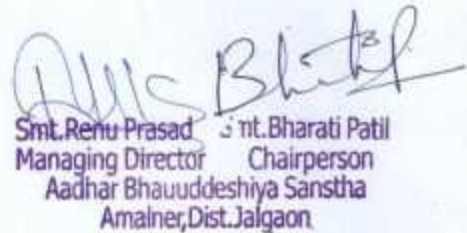 Bhartip
Smt.Renu Prasad Smt.Bharati Patil
Managing Director Chairperson
Aadhar Bhauuddeshiya Sanstha
Amalner,Dist.Jalgaon